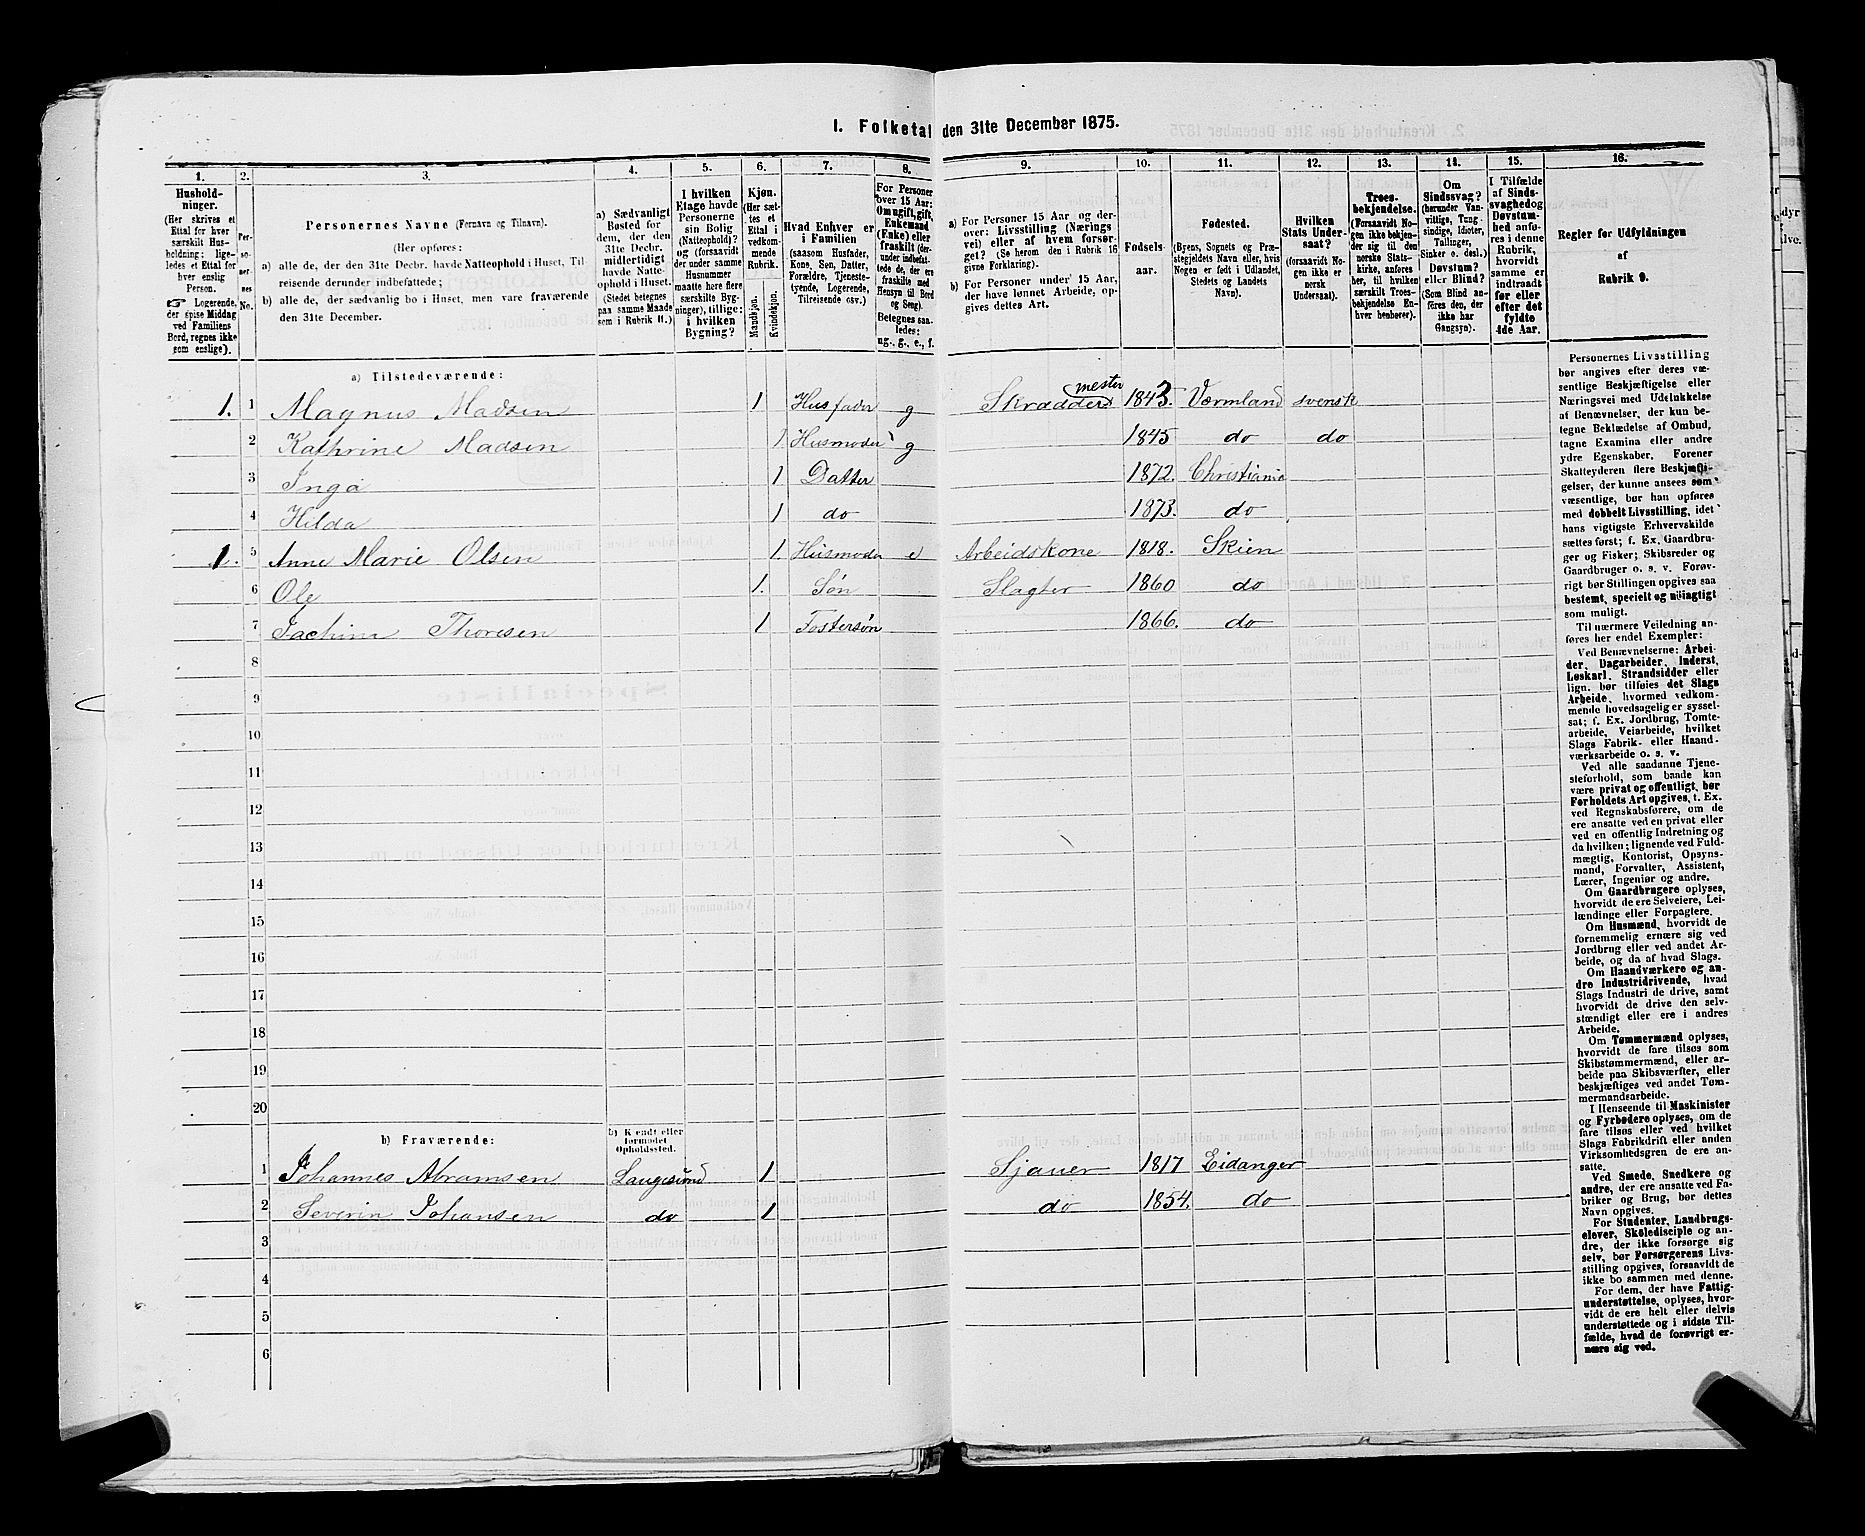 1. Folketal den 31te December 1875.
1. 2. 3. 4. 5. 6. 7. 8. 9. 10. 11. 12. 13. 14. 15. 16.
Hushold-
ninger.
(Her skrives et
Ettal for hver
særskilt Hus-
holdning; lige-
ledes et Ettal for
hver enslig
Person.
☞ Logerende,
der spise Middag
ved Familiens
Bord, regnes ikke
som enslige).
Per-
so-
ner-
nes
No.
Personernes Navne (Fornavn og Tilnavn).
(Her opføres:
a) alle de, der den 31te Decbr. havde Natteophold i Huset, Til-
reisende derunder indbefattede;
b) alle de, der sædvanlig bo i Huset, men vare fraværende
den 31te December.
a) Sædvanligt
Bosted for
dem, der den
31te Decbr.
midlertidigt
havde Natte-
ophold i Huset.
(Stedet betegnes
paa samme Maade
som i Rubrik 11.)
I hvilken
Etage havde
Personerne
sin Bolig
(Natteophold)?
og (forsaavidt
der under samme
Husnummer
maatte høre flere
særskilte Byg-
ninger), tillige:
i hvilken
Bygning?
Kjøn.
(Her sæt-
tes et
Ettal i
vedkom-
mende
Rubrik.
Mandkjøn.
Kvindekjøn.
Hvad Enhver er
i Familien
(saasom Husfader,
Kone, Søn, Datter,
Forældre, Tjeneste-
tyende, Logerende,
Tilreisende osv.)
For Personer
over 15 Aar:
Om ugift, gift,
Enkemand
(Enke) eller
fraskilt (der-
under indbefat-
tede de, der ere
fraskilte med
Hensyn til Bord
og Seng).
Betegnes saa-
ledes:
ug., g., e., f.
a) For Personer 15 Aar og der-
over: Livsstilling (Nærings
vei) eller af hvem forsør-
get? (Se herom den i Rubrik 16
givne Forklaring).
b) For Personer under 15 Aar,
der have lønnet Arbeide, op-
gives dettes Art.
Fødsels-
aar.
Fødested.
(Byens, Sognets og Præ-
stegjeldets Navn eller, hvis
Nogen er født i Udlandet,
Stedets og Landets
Navn).
Hvilken
Stats Under-
saat?
(forsaavidt No-
gen ikke er
norsk
Undersaat).
Troes-
bekjendelse.
(Forsaavidt No-
gen ikke bekjen-
der sig til den
norske Stats-
kirke, anføres
her, til hvilken
særskilt Troes-
bekjendelse En-
hver henhører).
Om
Sindssvag?
(herunder Van-
vittige, Tung-
sindige, Idioter,
Tullinger,
Sinker o. desl.)
Døvstum?
eller Blind?
(Som Blind an-
føres den, der
ikke har
Gangsyn).
I Tilfælde
af Sinds-
svaghed og
Døvstum-
hed anfø-
res i denne
Rubrik,
hvorvidt
samme er
indtraadt
før eller
efter det
fyldte
4de Aar.
Regler for Udfyldningen
af
Rubrik 9.
a) Tilstedeværende:
1. 1 Magnus Madsen 1 Husfader g Skrædder mester 1843. Værmland svensk
2 Kathrine Madsen 1 Husmoder g 1845 do do
3 Inga 1 Datter 1872. Christiania
4 Hilda 1 do 1873. do
1. 5 Anne Marie Olsen 1. Husmoder e Arbeidskone 1818. Skien
6 Ole 1. Søn Slagter 1860 do
7 Jachim Thoresen 1 Fostersøn 1866. do
8
9
10
11
12
13
14
15
16
17
18
19
20
b) Fraværende:
b) Kjendt eller
formodet
Opholdssted.
1 Johannes Abramsen Langesund 1 Sjauer 1817 Eidanger
2 Severin Johansen do 1 do 1854. do
3
4
5
6
Personernes Livsstilling
bør angives efter deres væ-
sentlige Beskjæftigelse eller
Næringsvei med Udelukkelse
af Benævnelser, der kun be-
tegne Beklædelse af Ombud,
tagne Examina eller andre
ydre Egenskaber. Forener
Skatteyderen flere Beskjæfti-
gelser, der kunne ansees som
væsentlige, bør han opføres
med dobbelt Livsstilling, idet
hans vigtigste Erhvervskilde
sættes først; f. Ex. Gaardbru-
ger og Fisker; Skibsreder og
Gaardbruger o. s. v. Forøv-
rigt bør Stillingen opgives saa
bestemt, specielt og nøiagtigt
som muligt.
Til nærmere Veiledning an-
føres her endel Exempler:
Ved Benævnelserne: Arbei-
der, Dagarbeider, Inderst,
Løskarl, Strandsidder eller
lign. bør tilføies det Slags
Arbeide, hvormed vedkom-
mende hovedsagelig er syssel-
sat; f. Ex. Jordbrug, Tomte-
arbeide, Veiarbeide, hvilket
Slags Fabrik- eller Haand-
værksarbeide o. s. v.
Ved alle saadanne Tjene-
steforhold, som baade kan
være privat og offentligt, bør
Forholdets Art opgives, t. Ex.
ved Regnskabsførere, om de
ere ansatte ved en privat eller
ved en offentlig Indretning og
da hvilken; lignende ved Fuld-
mægtig, Kontorist, Opsyns-
mand, Forvalter, Assistent,
Lærer, Ingeniør og andre.
Om Gaardbrugere oplyses,
hvorvidt de ere Selveiere, Lei-
lændinge eller Forpagtere.
Om Husmænd, hvorvidt de
fornemmelig ernære sig ved
Jordbrug eller ved andet Ar-
beide, og da af hvad Slags.
Om Haandværkere og an-
dre Industridrivende, hvad
Slags Industri de drive, samt
hvorvidt de drive den selv-
stændigt eller ere i andres
Arbeide.
Om Tømmermænd oplyses,
hvorvidt de fare tilsøs som
Skibstømmermænd, eller ar-
beide paa Skibsværfter, eller
beskjæftiges ved andet Tøm-
mermandsarbeide.
I Henseende til Maskinister
og Fyrbødere oplyses, om de
fare tilsøs eller ved hvilket
Slags Fabrikdrift eller anden
Virksomhedsgren de ere an-
satte.
Ved Smede, Snedkere og
andre, der ere ansatte ved Fa-
briker og Brug, bør dettes
Navn opgives.
For Studenter, Landbrugs-
elever, Skoledisciple og an-
dre, der ikke forsørge sig
selv, bør Forsørgerens Livs-
stilling opgives, forsaavidt de
ikke bo sammen med denne.
For dem, der have Fattig-
understøttelse, oplyses, hvor-
vidt de ere helt eller delvis
understøttede og i sidste Til-
fælde, hvad de forøvrigt er-
nære sig ved.